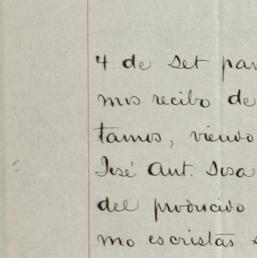 4 de Set par
mos recibo de
tamos, viendo
José Ant. Sosa
del producido
mo escristãs